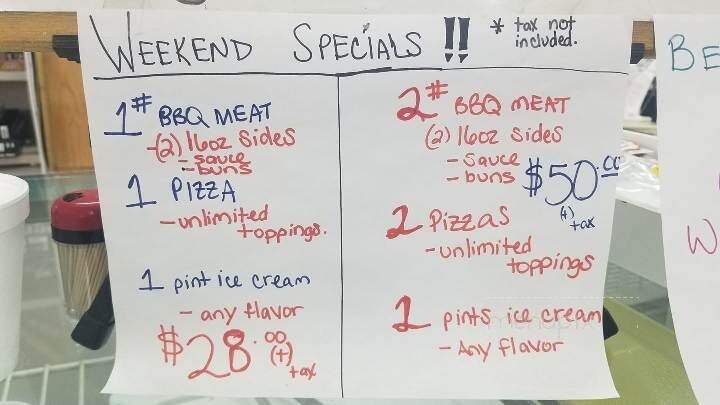 WEEKEND SPECIALS !!
* tax not
included.
1# BBQ MEAT
-(2) 16oz Sides
- sauce
- buns
1 PIZZA
- unlimited
toppings.
1 pint ice cream
- any flavor
$28.00
(+)
tax
2# BBQ MEAT
(2) 16oz Sides
- Sauce
- buns
$50.00
(+)
tax
2 Pizzas
- unlimited
toppings
2 pints ice cream
- Any flavor
BE
W